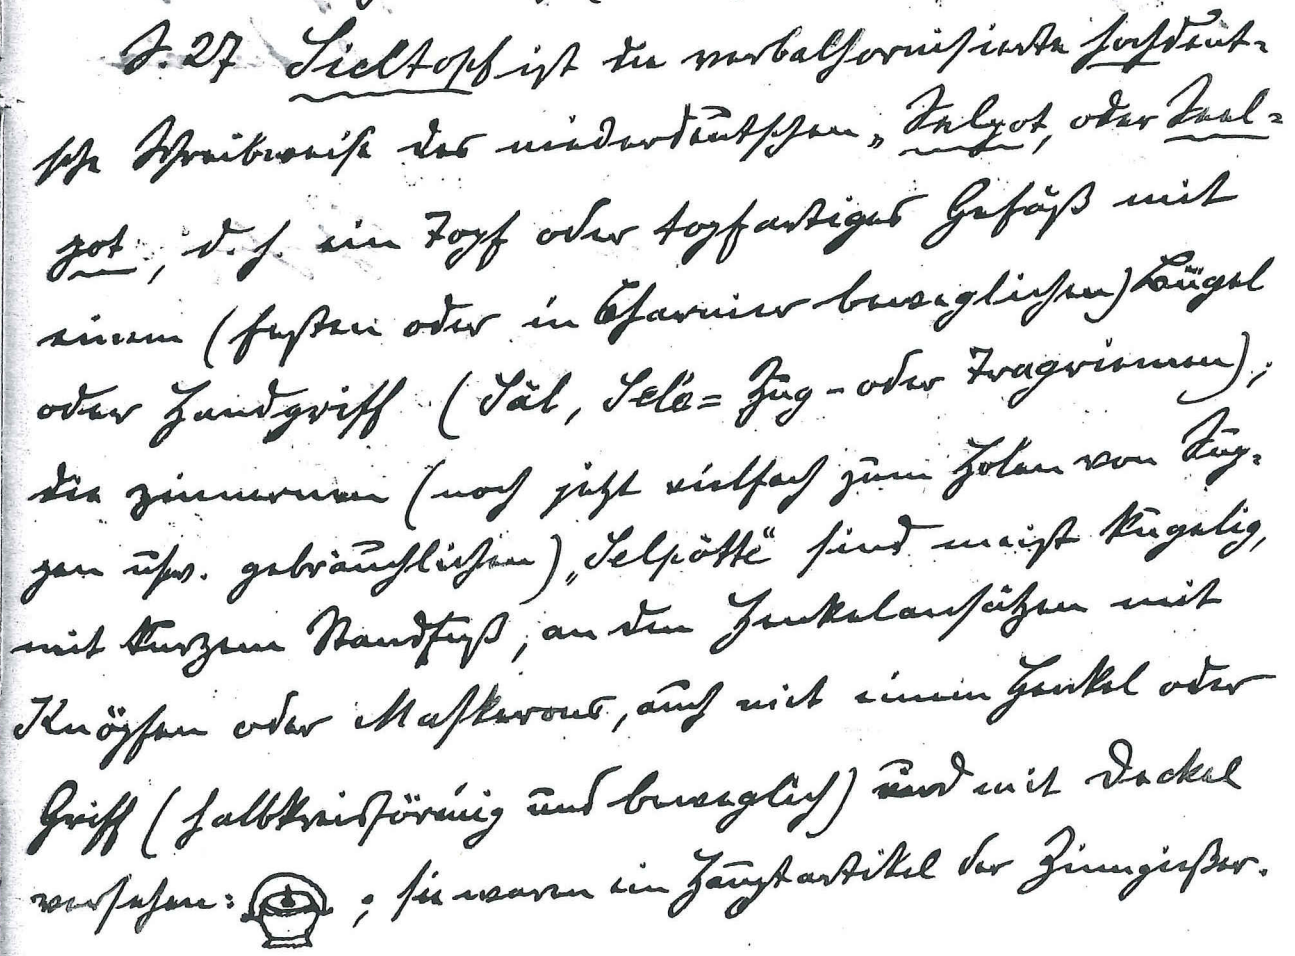 S. 27 Sieltopf ist die verbalhornisierte hochdeut-
sche Schreibweise des niederdeutschen „Selpot, oder Seel-
pot", d. h. ein Topf oder topfartiges Gefäß mit
einem (festen oder in Charnier beweglichen) Bügel
oder Handgriff (Säl, Sele = Zug- oder Tragriemen);
die zinnernen (noch jetzt vielfach zum Holen von Sup-
pen usw. gebräuchlichen) „Selpötte" sind meist kugelig,
mit kurzem Standfuß, an den Henkelansätzen mit
Knöpfen oder Maskerons, auch mit einem Henkel oder
Griff (halbkreisförmig und beweglich) und mit Deckel
versehen: ; sie waren ein Hauptartikel der Zinngießer.